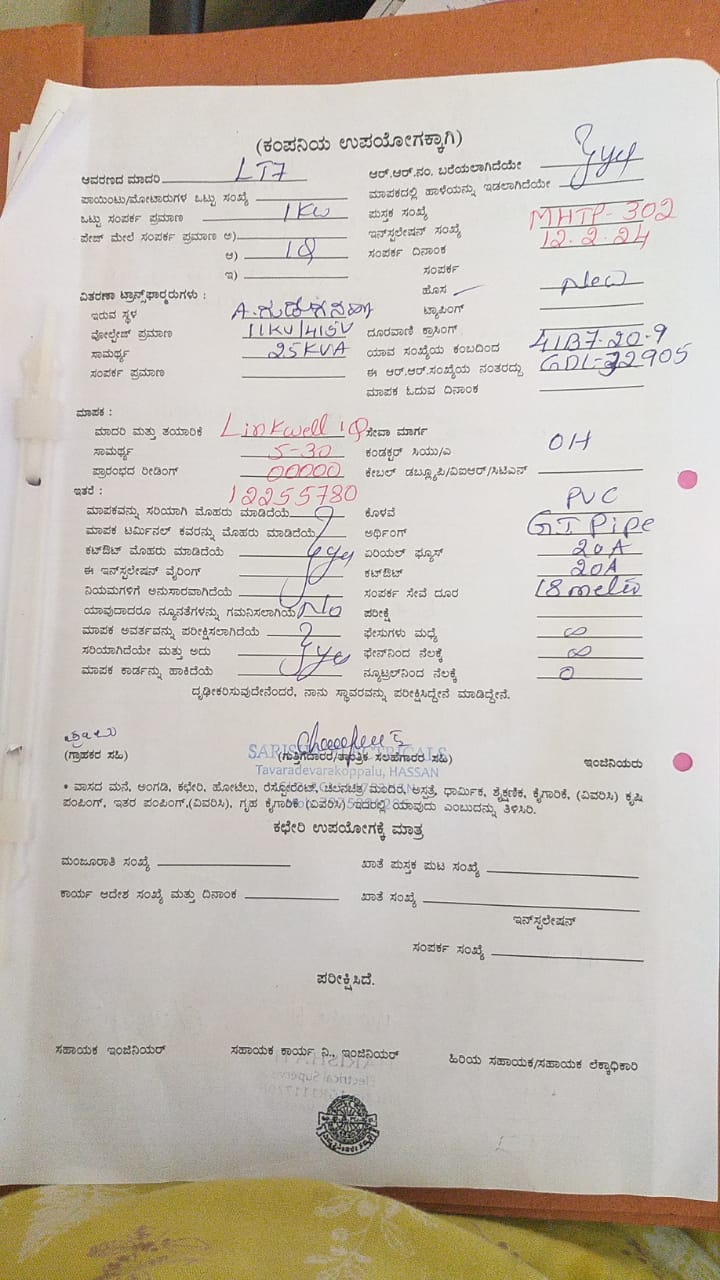 (ಕಂಪನಿಯ ಉಪಯೋಗಕ್ಕಾಗಿ)
ಆವರಣದ ಮಾದರಿ LT7
ಪಾಯಿಂಟು/ಮೋಟಾರುಗಳ ಒಟ್ಟು ಸಂಖ್ಯೆ
ಒಟ್ಟು ಸಂಪರ್ಕ ಪ್ರಮಾಣ 1KW
ಪೇಜ್ ಮೇಲೆ ಸಂಪರ್ಕ ಪ್ರಮಾಣ ಅ)
ಆ) 1Q
ಇ)
ವಿತರಣಾ ಟ್ರಾನ್ಸ್‌ಫಾರ್‍ಮರುಗಳು :
ಇರುವ ಸ್ಥಳ
ವೋಲ್ಟೇಜ್ ಪ್ರಮಾಣ 11KV/415V
ಸಾಮರ್ಥ್ಯ 25KVA
ಸಂಪರ್ಕ ಪ್ರಮಾಣ
ಆರ್.ಆರ್.ನಂ. ಬರೆಯಲಾಗಿದೆಯೇ
ಮಾಪಕದಲ್ಲಿ ಹಾಳೆಯನ್ನು ಇಡಲಾಗಿದೆಯೇ yes
ಪುಸ್ತಕ ಸಂಖ್ಯೆ
ಇನ್‌ಸ್ಟಲೇಷನ್ ಸಂಖ್ಯೆ MHTP-302
ಸಂಪರ್ಕ ದಿನಾಂಕ 12.2.24
ಸಂಪರ್ಕ
ಹೊಸ New
ಟ್ಯಾಪಿಂಗ್
ದೂರವಾಣಿ ಕ್ರಾಸಿಂಗ್
ಯಾವ ಸಂಖ್ಯೆಯ ಕಂಬದಿಂದ 41B7-20-9
ಈ ಆರ್.ಆರ್.ಸಂಖ್ಯೆಯ ನಂತರದ್ದು
ಮಾಪಕ ಓದುವ ದಿನಾಂಕ
ಮಾಪಕ :
ಮಾದರಿ ಮತ್ತು ತಯಾರಿಕೆ Linkwell 1Q
ಸಾಮರ್ಥ್ಯ 5-30
ಪ್ರಾರಂಭದ ರೀಡಿಂಗ್ 00000
ಇತರೆ : 12255780
ಮಾಪಕವನ್ನು ಸರಿಯಾಗಿ ಮೊಹರು ಮಾಡಿದೆಯೆ
ಮಾಪಕ ಟರ್ಮಿನಲ್ ಕವರನ್ನು ಮೊಹರು ಮಾಡಿದೆಯೆ
ಕಟ್‌ಔಟ್ ಮೊಹರು ಮಾಡಿದೆಯೆ yes
ಈ ಇನ್‌ಸ್ಟಲೇಷನ್ ವೈರಿಂಗ್
ನಿಯಮಗಳಿಗೆ ಅನುಸಾರವಾಗಿದೆಯೆ
ಯಾವುದಾದರೂ ನ್ಯೂನತೆಗಳನ್ನು ಗಮನಿಸಲಾಗಿಯೆ No
ಮಾಪಕ ಅವರ್ತವನ್ನು ಪರೀಕ್ಷಿಸಲಾಗಿದೆಯೆ
ಸರಿಯಾಗಿದೆಯೇ ಮತ್ತು ಅದು yes
ಮಾಪಕ ಕಾರ್ಡನ್ನು ಹಾಕಿದೆಯೆ
ಸೇವಾ ಮಾರ್ಗ
ಕಂಡಕ್ಟರ್ ಸಿಯು/ಎ OH
ಕೇಬಲ್ ಡಬ್ಲ್ಯೂಪಿ/ವಿಐಆರ್/ಸಿಟಿಎಸ್
ಕೊಳವೆ PVC
ಅರ್ಥಿಂಗ್ GI Pipe
ಏರಿಯಲ್ ಫ್ಯೂಸ್ 20A
ಕಟ್‌ಔಟ್ 20A
ಸಂಪರ್ಕ ಸೇವೆ ದೂರ 18 meter
ಪರೀಕ್ಷೆ
ಫೇಸುಗಳು ಮಧ್ಯೆ ∞
ಫೇಸ್‌ನಿಂದ ನೆಲಕ್ಕೆ ∞
ನ್ಯೂಟ್ರಲ್‌ನಿಂದ ನೆಲಕ್ಕೆ 0
ದೃಢೀಕರಿಸುವುದೇನೆಂದರೆ, ನಾನು ಸ್ಥಾವರವನ್ನು ಪರೀಕ್ಷಿಸಿದ್ದೇನೆ ಮಾಡಿದ್ದೇನೆ.
SARISH ELECTRICALS
(ಗ್ರಾಹಕರ ಸಹಿ) (ಗುತ್ತಿಗೆದಾರರ/ತಾಂತ್ರಿಕ ಸಲಹೆಗಾರರ ಸಹಿ) ಇಂಜಿನಿಯರು
Tavaradevarakoppalu, HASSAN
• ವಾಸದ ಮನೆ, ಅಂಗಡಿ, ಕಛೇರಿ, ಹೋಟೆಲು, ರೆಸ್ಟೋರೆಂಟ್, ಚಲನಚಿತ್ರ ಮಂದಿರ, ಆಸ್ಪತ್ರೆ, ಧಾರ್ಮಿಕ, ಶೈಕ್ಷಣಿಕ, ಕೈಗಾರಿಕೆ, (ವಿವರಿಸಿ) ಕೃಷಿ
ಪಂಪಿಂಗ್, ಇತರ ಪಂಪಿಂಗ್,(ವಿವರಿಸಿ), ಗೃಹ ಕೈಗಾರಿಕೆ (ವಿವರಿಸಿ) ಇದರಲ್ಲಿ ಯಾವುದು ಎಂಬುದನ್ನು ತಿಳಿಸಿರಿ.
ಕಛೇರಿ ಉಪಯೋಗಕ್ಕೆ ಮಾತ್ರ
ಮಂಜೂರಾತಿ ಸಂಖ್ಯೆ
ಖಾತೆ ಪುಸ್ತಕ ಪುಟ ಸಂಖ್ಯೆ
ಕಾರ್ಯ ಆದೇಶ ಸಂಖ್ಯೆ ಮತ್ತು ದಿನಾಂಕ
ಖಾತೆ ಸಂಖ್ಯೆ
ಇನ್‌ಸ್ಟಲೇಷನ್
ಸಂಪರ್ಕ ಸಂಖ್ಯೆ
ಪರೀಕ್ಷಿಸಿದೆ.
ಸಹಾಯಕ ಇಂಜಿನಿಯರ್ ಸಹಾಯಕ ಕಾರ್ಯ ನಿ., ಇಂಜಿನಿಯರ್ ಹಿರಿಯ ಸಹಾಯಕ/ಸಹಾಯಕ ಲೆಕ್ಕಾಧಿಕಾರಿ